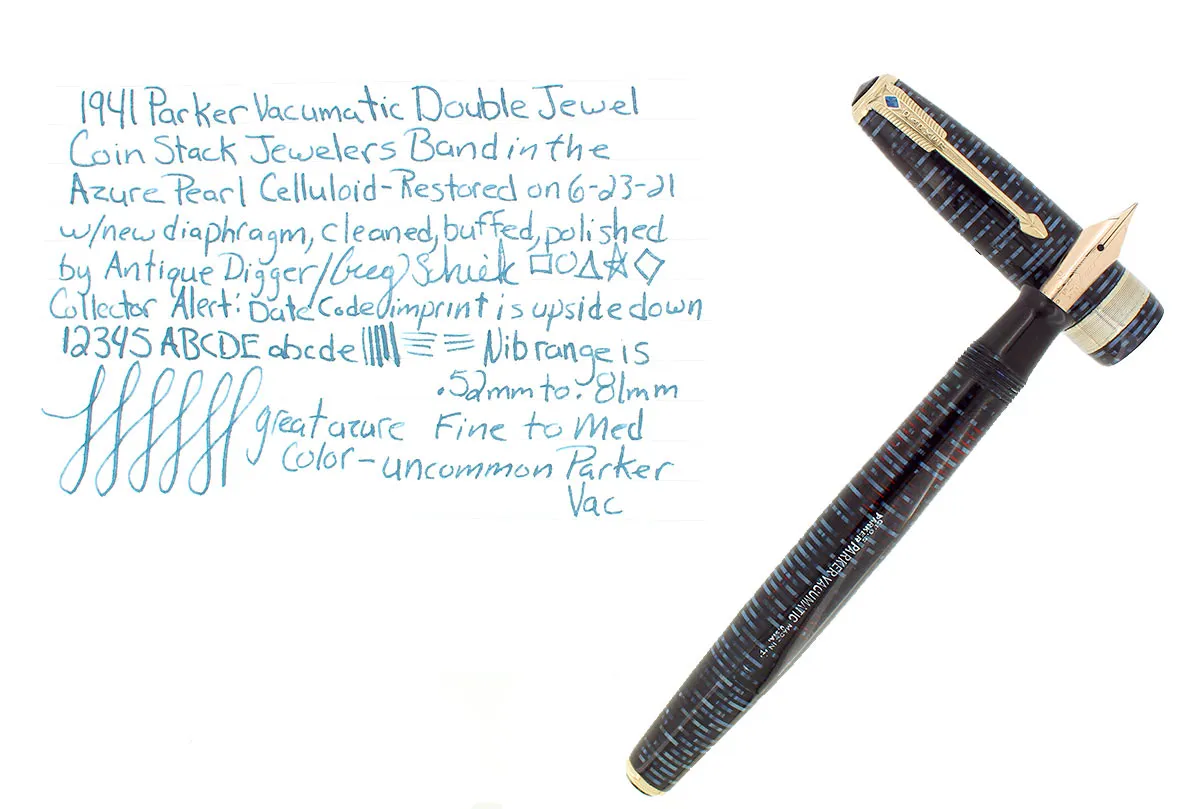 1941 Parker Vacumatic Double Jewel
Coin Stack Jewelers Band in the
Azure Pearl Celluloid-Restored on 6-23-21
w/new diaphragm, cleaned, buffed, polished
by Antique Digger/Greg Schiek
Collector Alert: Date Code imprint is upside down
12345 ABCDE abcde Nib range is
.52mm to .81mm
great azure Fine to Med
color-uncommon Parker
Vac
PARKER VACUMATIC
MADE IN
U.S.A.